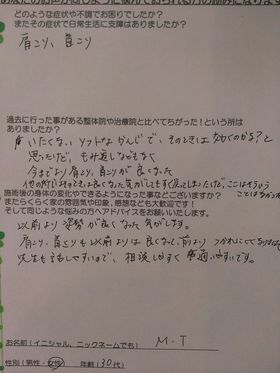 どのような症状や不調でお困りでしたか?
またその症状で日常生活に支障はありましたか?
肩こり、首こり
過去に行った事がある整体院や治療院と比べてちがった!という所は
ありましたか?
痛いたくない、ソフトなかんじで、そのときは なおるのかな?と
思ったけど、もみ返しなどもなく
今までより肩こり、首こりが良くなった
他の所では そのときは良くなった気がしてもすぐ戻ってしまったけど、ここはそういう
ことはなかった
施術後の身体の変化やできるようになった事などございますか?
またらくらく家の雰囲気や印象、感想なども大歓迎です!
そして同じような悩みの方へアドバイスをお願いいたします。
以前より姿勢が良くなった気がします。
肩こり、首こりも以前よりは良くなり、前より つかれにくく
先生も 話しやすいので、相談しやすく 通いやすいです。
お名前(イニシャル、ニックネームでも) M.T
性別(男性・女性) 年齢(30代)